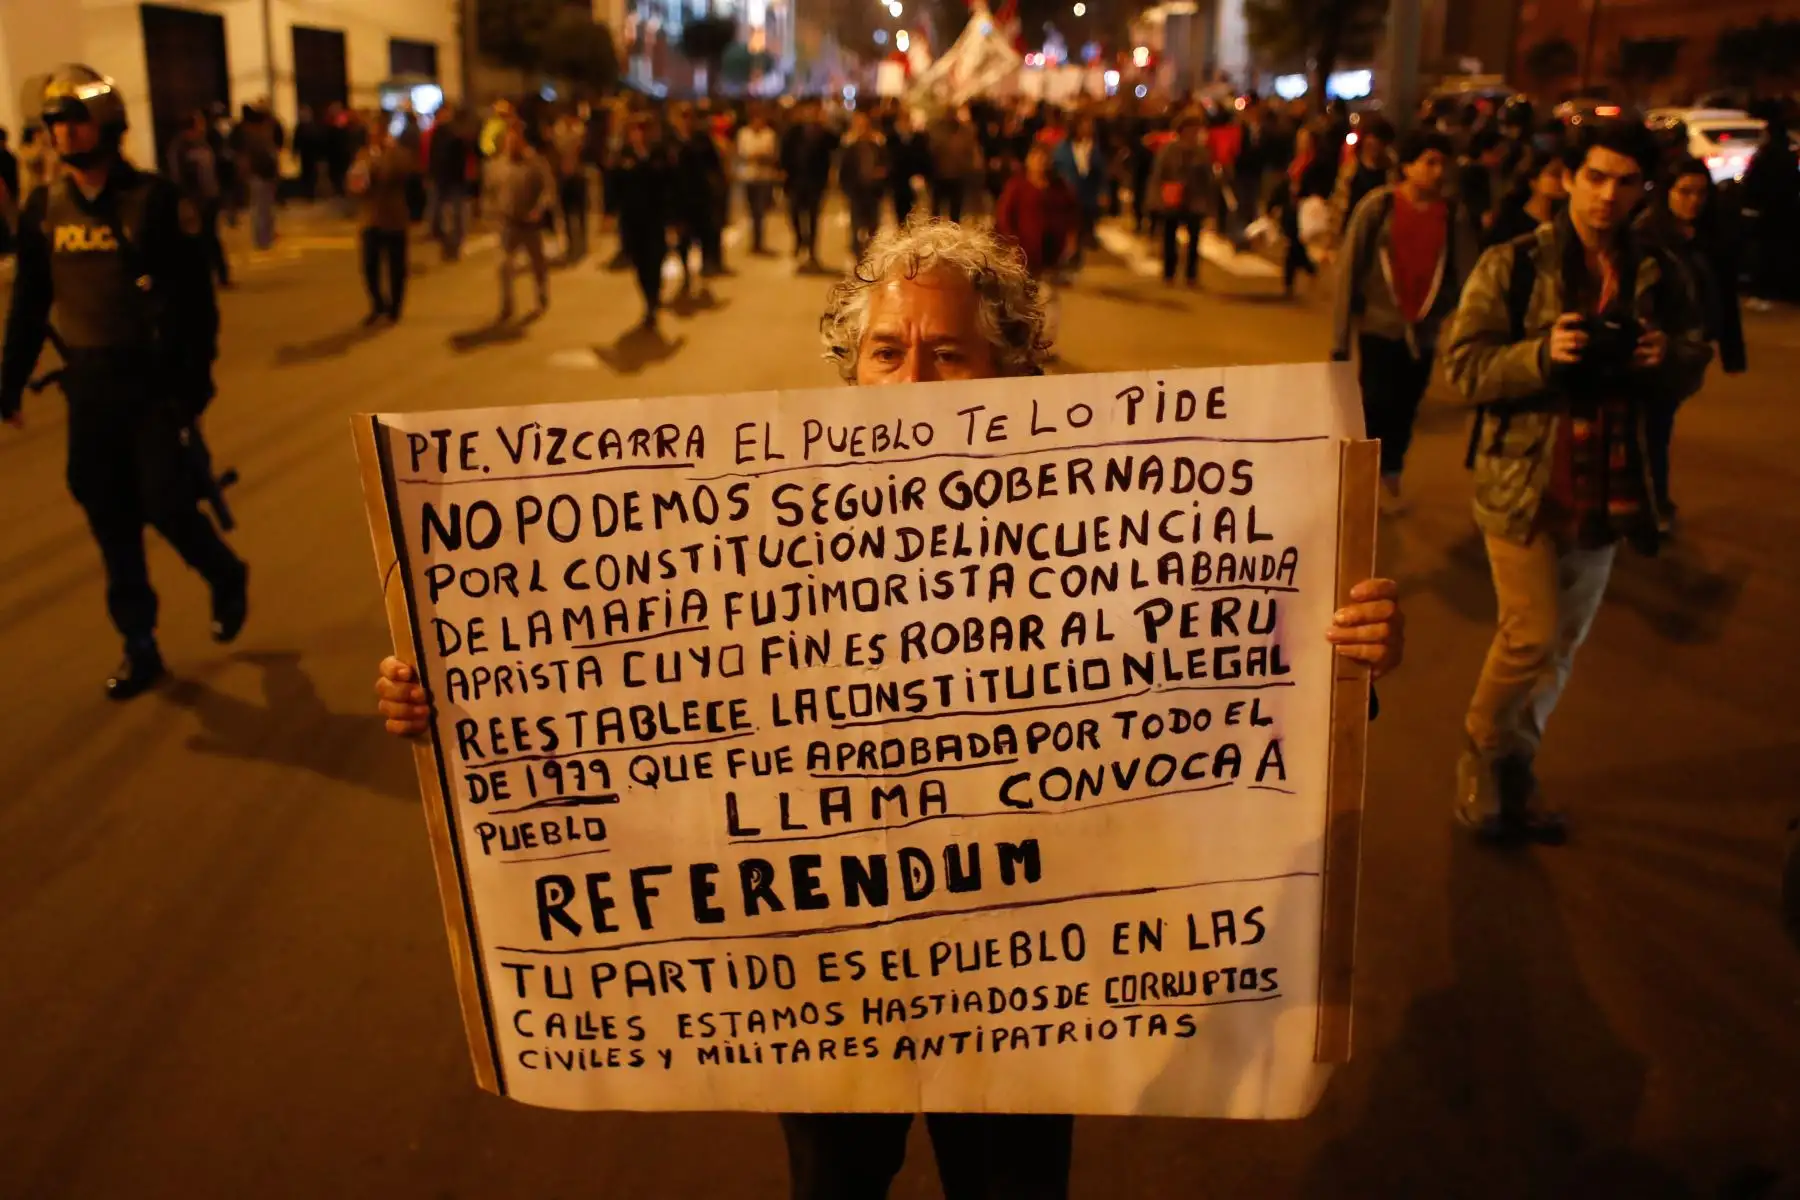 POLICIA
PTE. VIZCARRA EL PUEBLO TE LO PIDE
NO PODEMOS SEGUIR GOBERNADOS
POR L CONSTITUCIÓN DELINCUENCIAL
DE LA MAFIA FUJIMORISTA CON LA BANDA
APRISTA CUYO FIN ES ROBAR AL PERU
REESTABLECE LA CONSTITUCION LEGAL
DE 1979 QUE FUE APROBADA POR TODO EL
PUEBLO LLAMA CONVOCA A
REFERENDUM
TU PARTIDO ES EL PUEBLO EN LAS
CALLES ESTAMOS HASTIADOS DE CORRUPTOS
CIVILES Y MILITARES ANTIPATRIOTAS